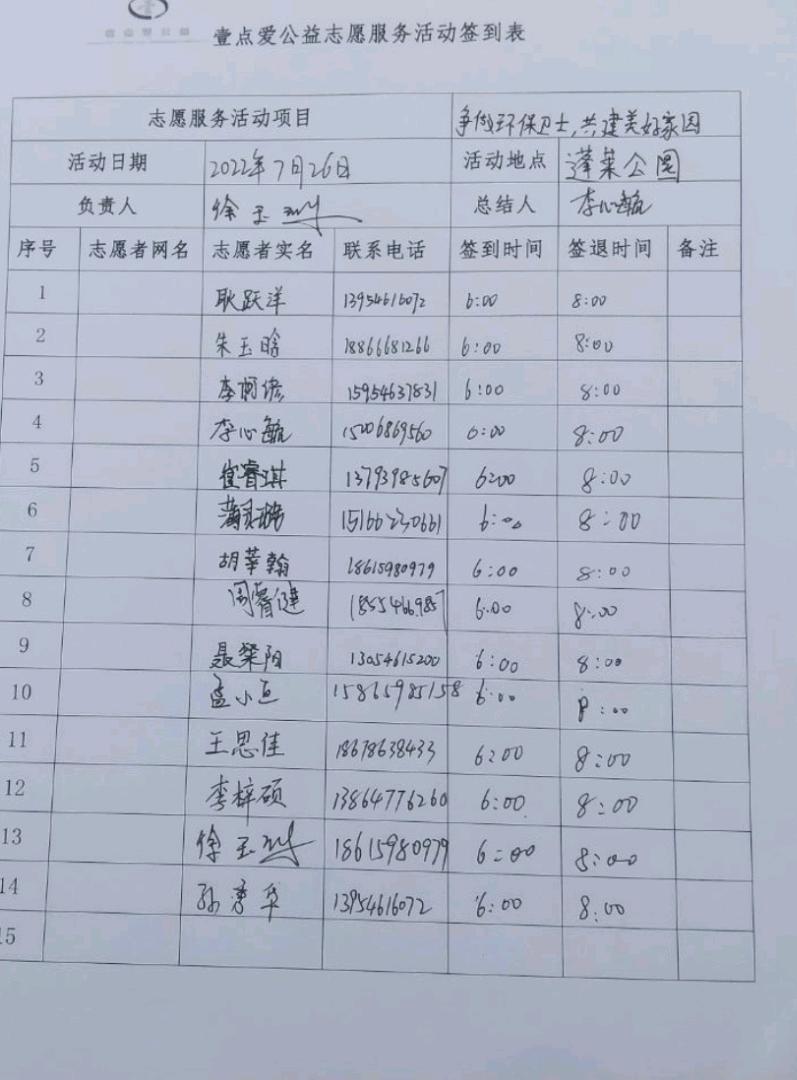 壹点爱公益志愿服务活动签到表
志愿服务活动项目 争做环保卫士,共建美好家园
活动日期 2022年7月26日 活动地点 蓬莱公园
负责人 徐玉 总结人 李心毓
序号 志愿者网名 志愿者实名 联系电话 签到时间 签退时间 备注
1 耿跃洋 13954616072 6:00 8:00
2 朱玉晗 18866681266 6:00 8:00
3 李 15954637831 6:00 8:00
4 李心毓 15206869560 6:00 8:00
5 崔睿琪 13793985607 6:00 8:00
6 15166230661 6:00 8:00
7 胡莘翰 18615980979 6:00 8:00
8 周睿健 6:00 8:00
9 聂荣阳 13054615200 6:00 8:00
10 孟小 15865985158 6:00 8:00
11 王思佳 18678638433 6:00 8:00
12 李梓硕 13864776260 6:00 8:00
13 徐玉 18615980979 6:00 8:00
14 孙秀华 13954616072 6:00 8:00
15